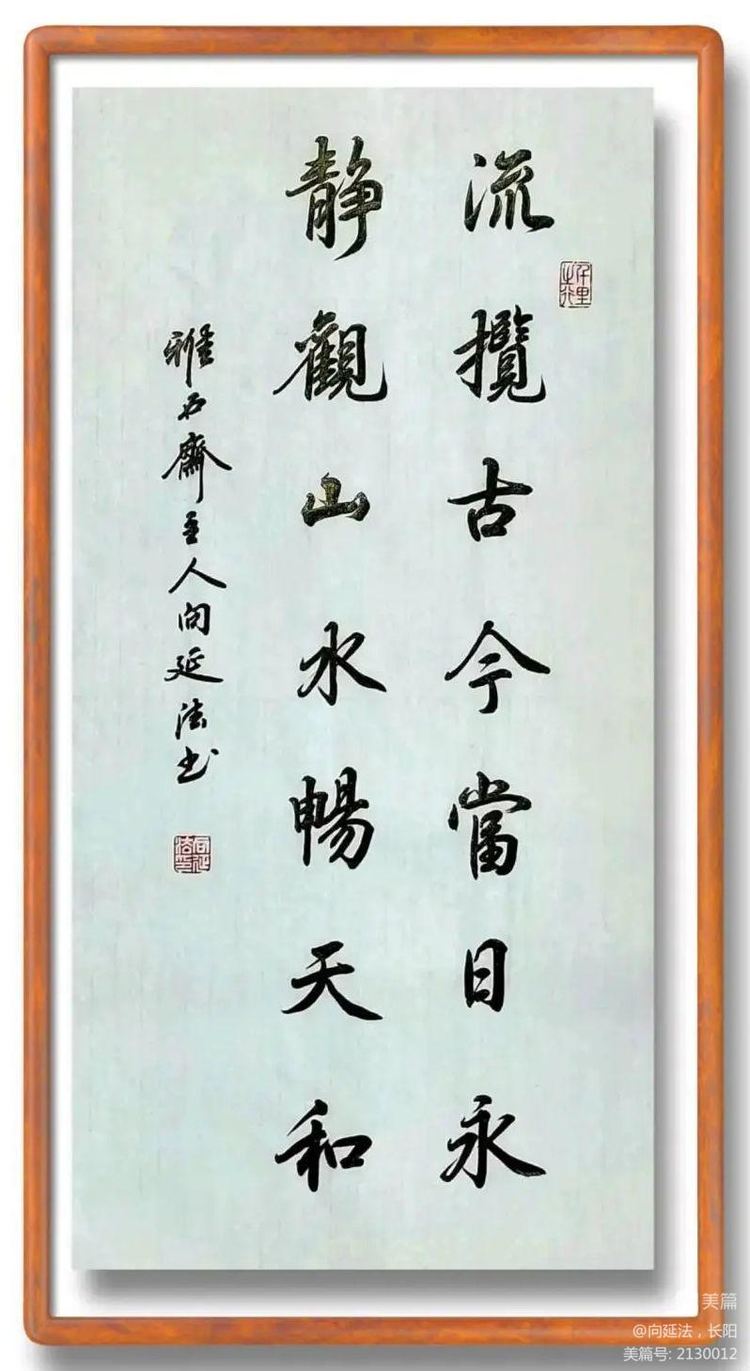 流攬古今當日永
靜觀山水暢天和
雅石齋主人向延法书
千里之行
向延法印
美篇
@向延法，长阳
美篇号: 2130012